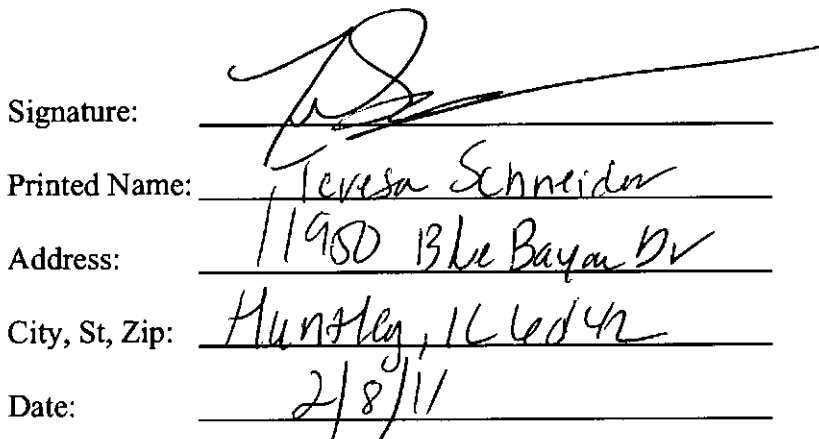 Signature:
Printed Name: Teresa Schneider
Address: 11950 Blue Bayou Dr
City, St, Zip: Huntley, IL
Date: 2/8/11